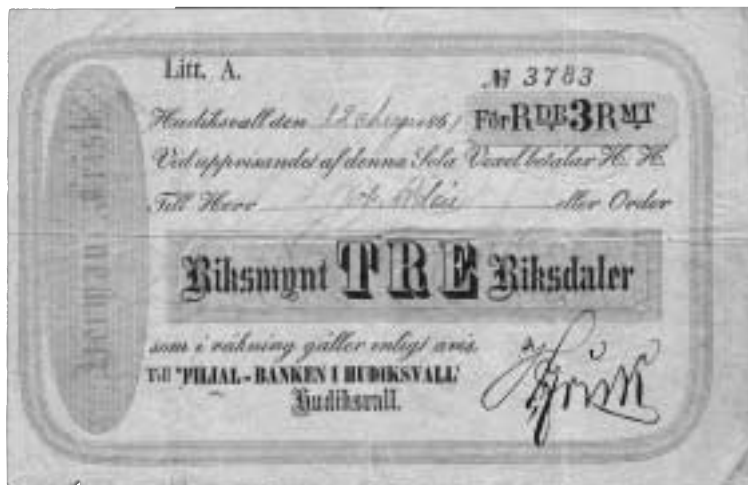 Litt. A.
№ 3783
Hudiksvall den 12 August 1861
För RDR 3 RMT
Vid uppvisandet af denna Sola Vexel betalar H. H.
Till Herr eller Order
Riksmynt TRE Riksdaler
som i räkning gäller enligt avis.
Till "FILJAL-BANKEN I HUDIKSVALL"
Hudiksvall.